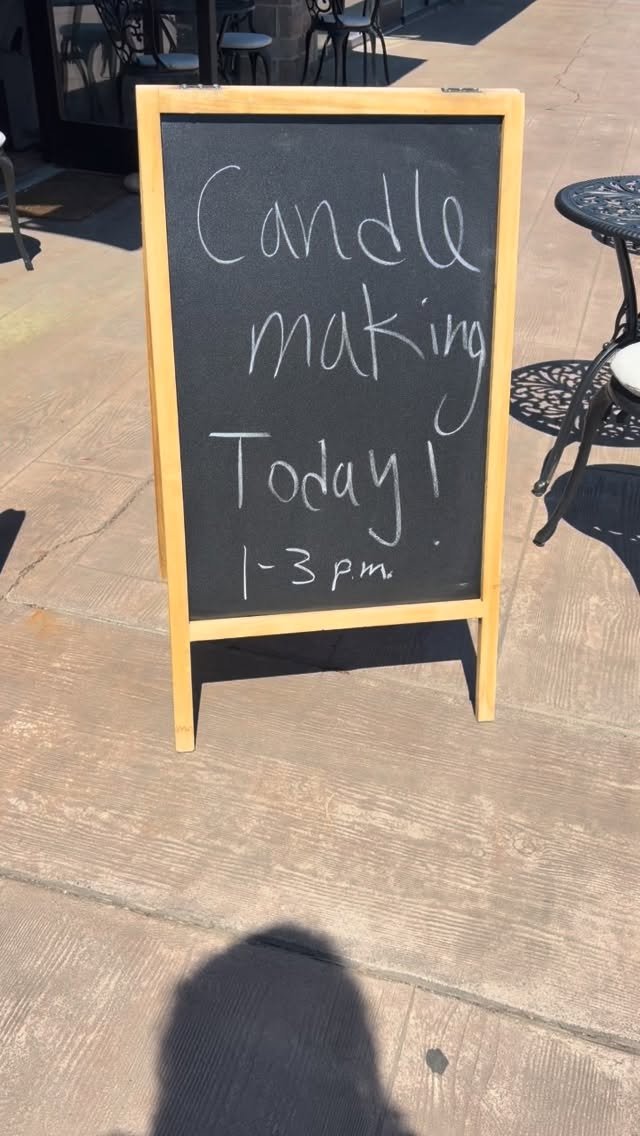 Candle
making
Today!
1-3 p.m.